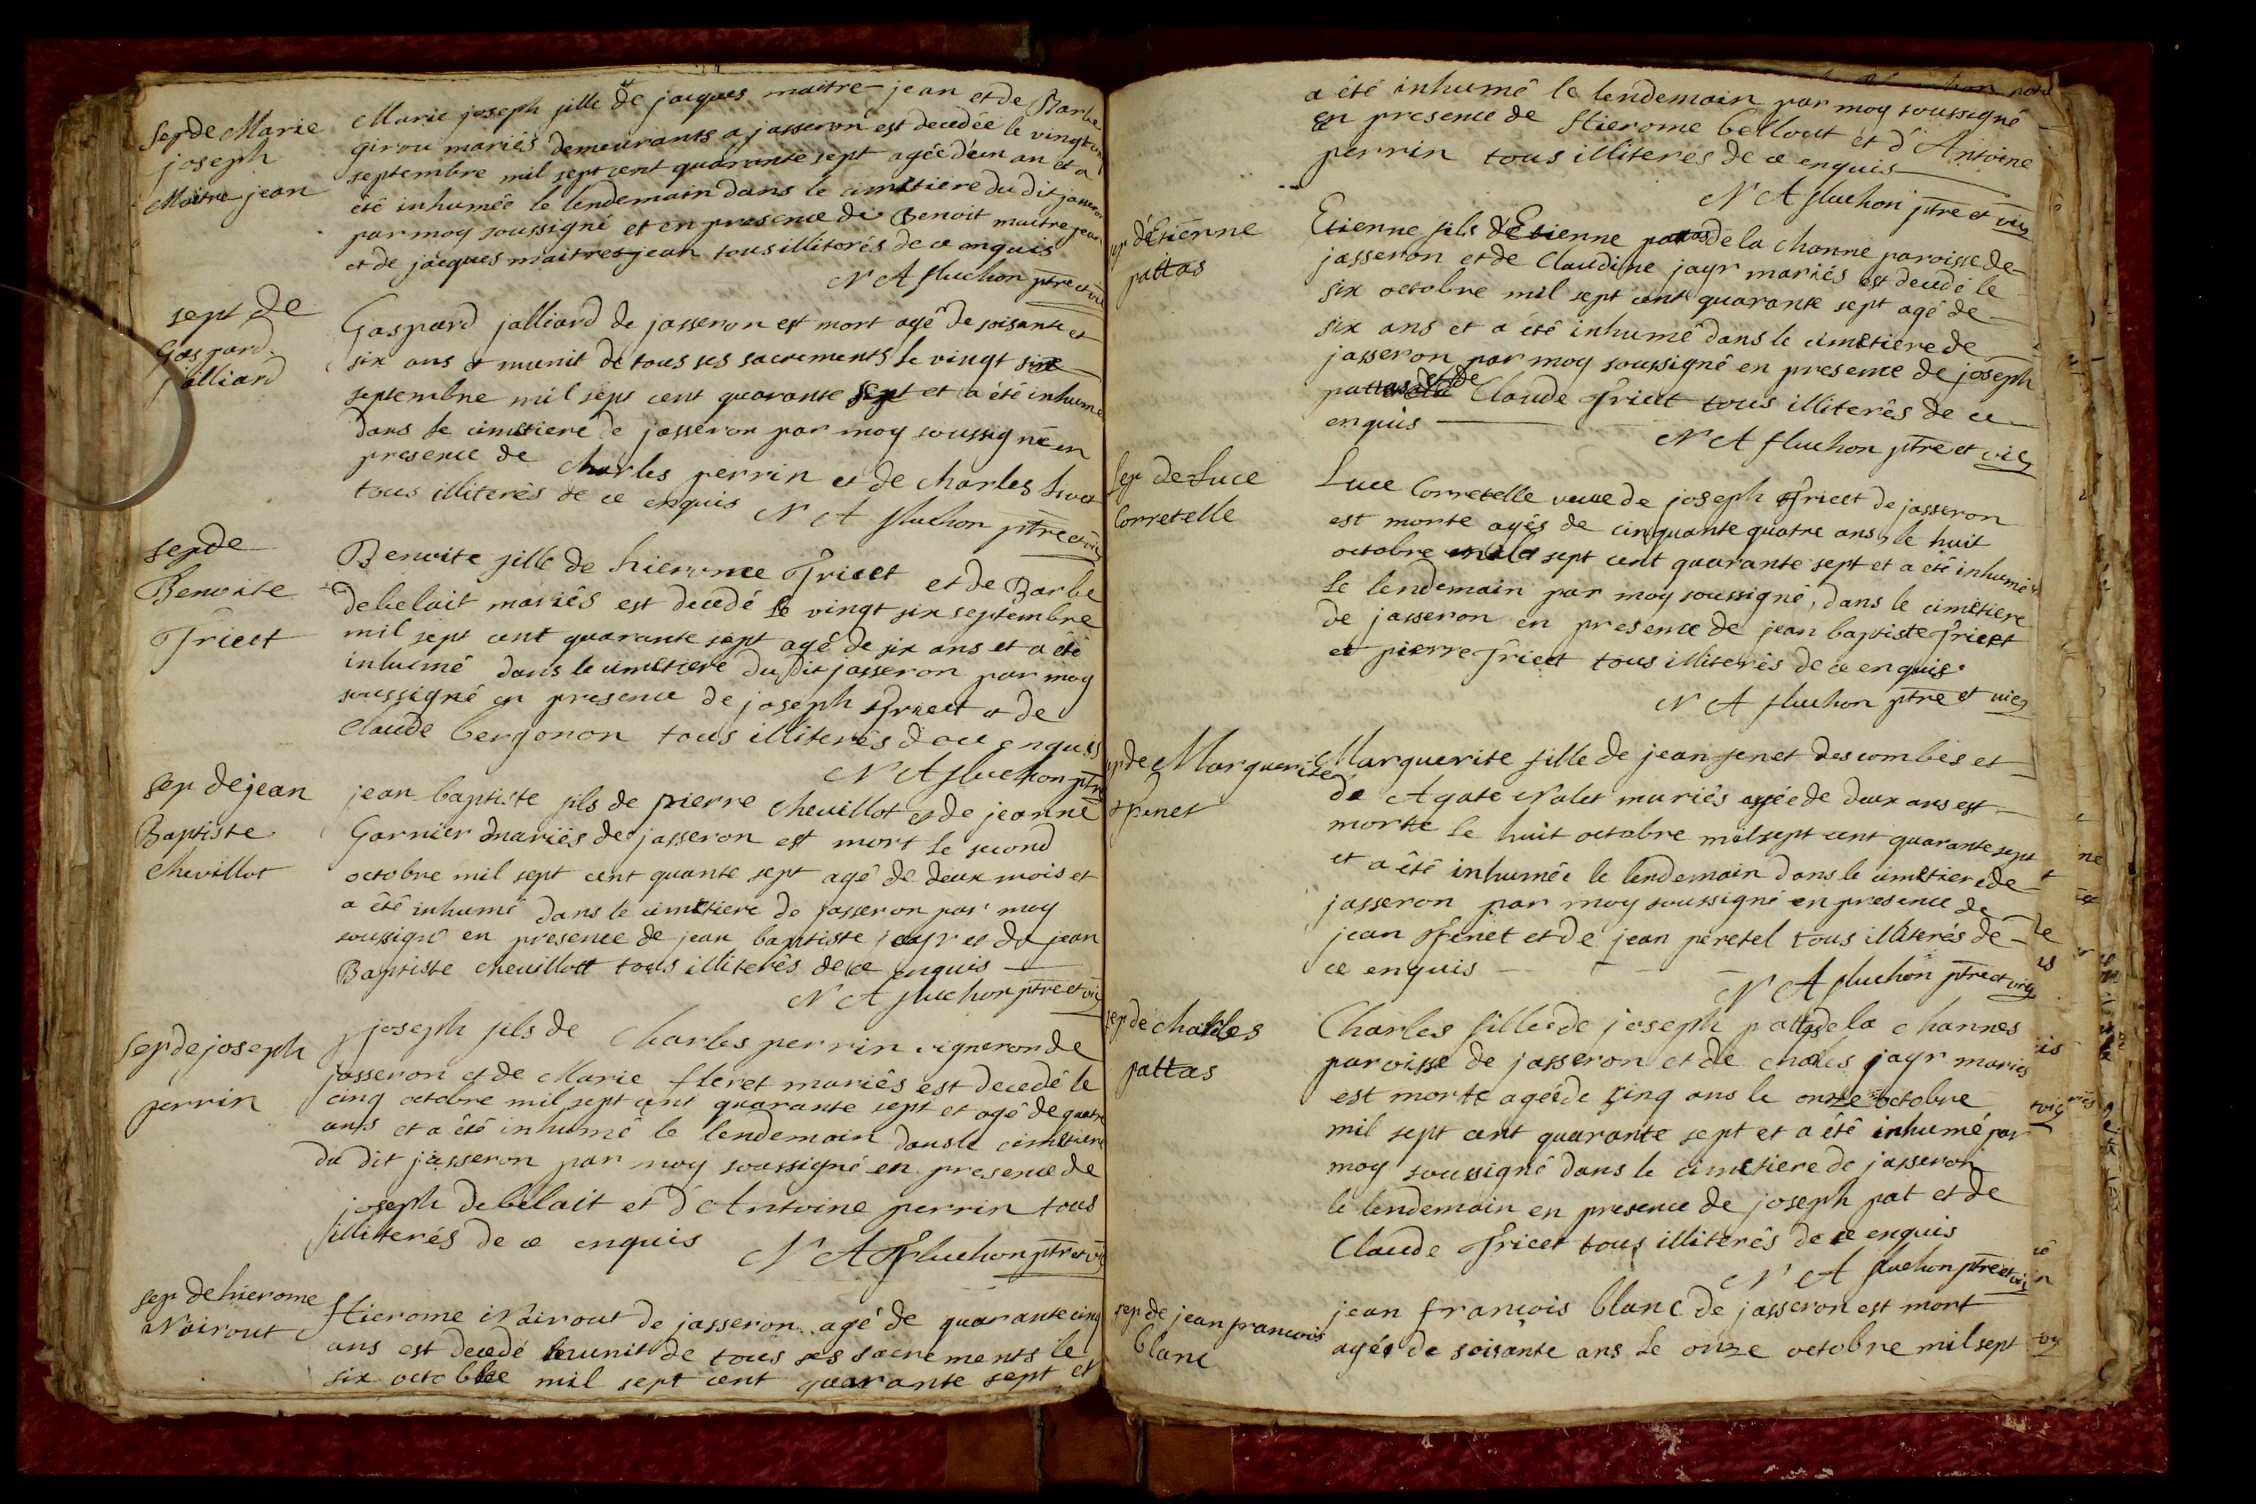 Sep de Marie
joseph
Maitre jean
Marie joseph fille de jacques maitre jean et de Barbe
girou mariés demeurants a jasseron est decedée le vingt
septembre mil sept cent quarante sept agée d'un an et a
été inhumée le lendemain dans le cimetiere du dit jasseron
par moy soussigné et en presence de Benoit maitre jean
et de jacques maitre jean tous illiterés de ce enquis
N A fluchon ptre et vic
sept de
Gaspard
jalliard
Gaspard jalliard de jasseron est mort agé de soisante et
six ans et munit de tous ses sacrements le vingt six
septembre mil sept cent quarante sept et a été inhumé
dans le cimetiere de jasseron par moy soussigné en
presence de charles perrin et de charles
tous illiterés de ce enquis N A fluchon ptre et vic
sep de
Benoite
Fricet
Benoite fille de hierome Fricet et de Barbe
debelait mariés est decedé le vingt six septembre
mil sept cent quarante sept agé de six ans et a été
inhumé dans le cimetiere du dit jasseron par moy
soussigné en presence de joseph fricet et de
Claude bergonon tous illiterés de ce enquis
N A fluchon ptre
sep de jean
Baptiste
chevillot
jean baptiste fils de pierre chevillot et de jeanne
Garnier mariés de jasseron est mort le second
octobre mil sept cent quante sept agé de deux mois et
a été inhumé dans le cimetiere de jasseron par moy
soussigné en presence de jean baptiste jayr et de jean
Baptiste chevillott tous illiterés de ce enquis
N A fluchon ptre et vic
Sep de joseph
perrin
joseph fils de Charles perrin vigneron de
jasseron et de Marie fleret mariés est decedé le
cinq octobre mil sept cent quarante sept et agé de quatre
ans et a été inhumé le lendemain dans le cimetiere
du dit jasseron par moy soussigné en presence de
joseph debelait et d'Antoine perrin tous
illiterés de ce enquis N A Fluchon ptre et vic
sep de hierome
Noirout
Hierome Noirout de jasseron agé de quarante cinq
ans est decedé munit de tous ses sacrements le
six octobre mil sept cent quarante sept et
a été inhumé le lendemain par moy soussigné
en presence de Hierome bellout et d'Antoine
perrin tous illiteres de ce enquis
N A fluchon ptre et vic
sep d'Etienne
pattas
Etienne fils d'Etienne pattas de la channe paroisse de
jasseron et de Claudine jayr mariés est decedé le
six octobre mil sept cent quarante sept agé de
six ans et a été inhumé dans le cimetiere de
jasseron par moy soussigné en presence de joseph
pattas et de Claude Fricet tous illiterés de ce
enquis
N A fluchon ptre et vic
Sep de Luce
Corretelle
Luce Corretelle veuve de joseph Fricet de jasseron
est morte agés de cinquante quatre ans, le huit
octobre mil sept cent quarante sept et a été inhumée
le lendemain par moy soussigné, dans le cimetiere
de jasseron en presence de jean baptiste Fricet
et pierre Fricet tous illiterés de ce enquis
N A fluchon ptre et vic
sep de Marguerite
fenet
Marguerite fille de jean fenet descombes et
de Agate Nalet mariés agée de deux ans est
morte le huit octobre mil sept cent quarante sept
et a été inhumée le lendemain dans le cimetiere de
jasseron par moy soussigné en presence de
jean Fenet et de jean peretel tous illiterés de
ce enquis
N A fluchon ptre et vic
sep de charles
pattas
Charles fille de joseph pattas de la channes
paroisse de jasseron et de charles jayr mariés
est morte agée de cinq ans le onze octobre
mil sept cent quarante sept et a été inhumé par
moy soussigné dans le cimetiere de jasseron
le lendemain en presence de joseph pat et de
Claude Fricet tous illiterés de ce enquis
N A fluchon ptre et vic
sep de jean francois
blanc
jean françois blanc de jasseron est mort
agée de soisante ans le onze octobre mil sept